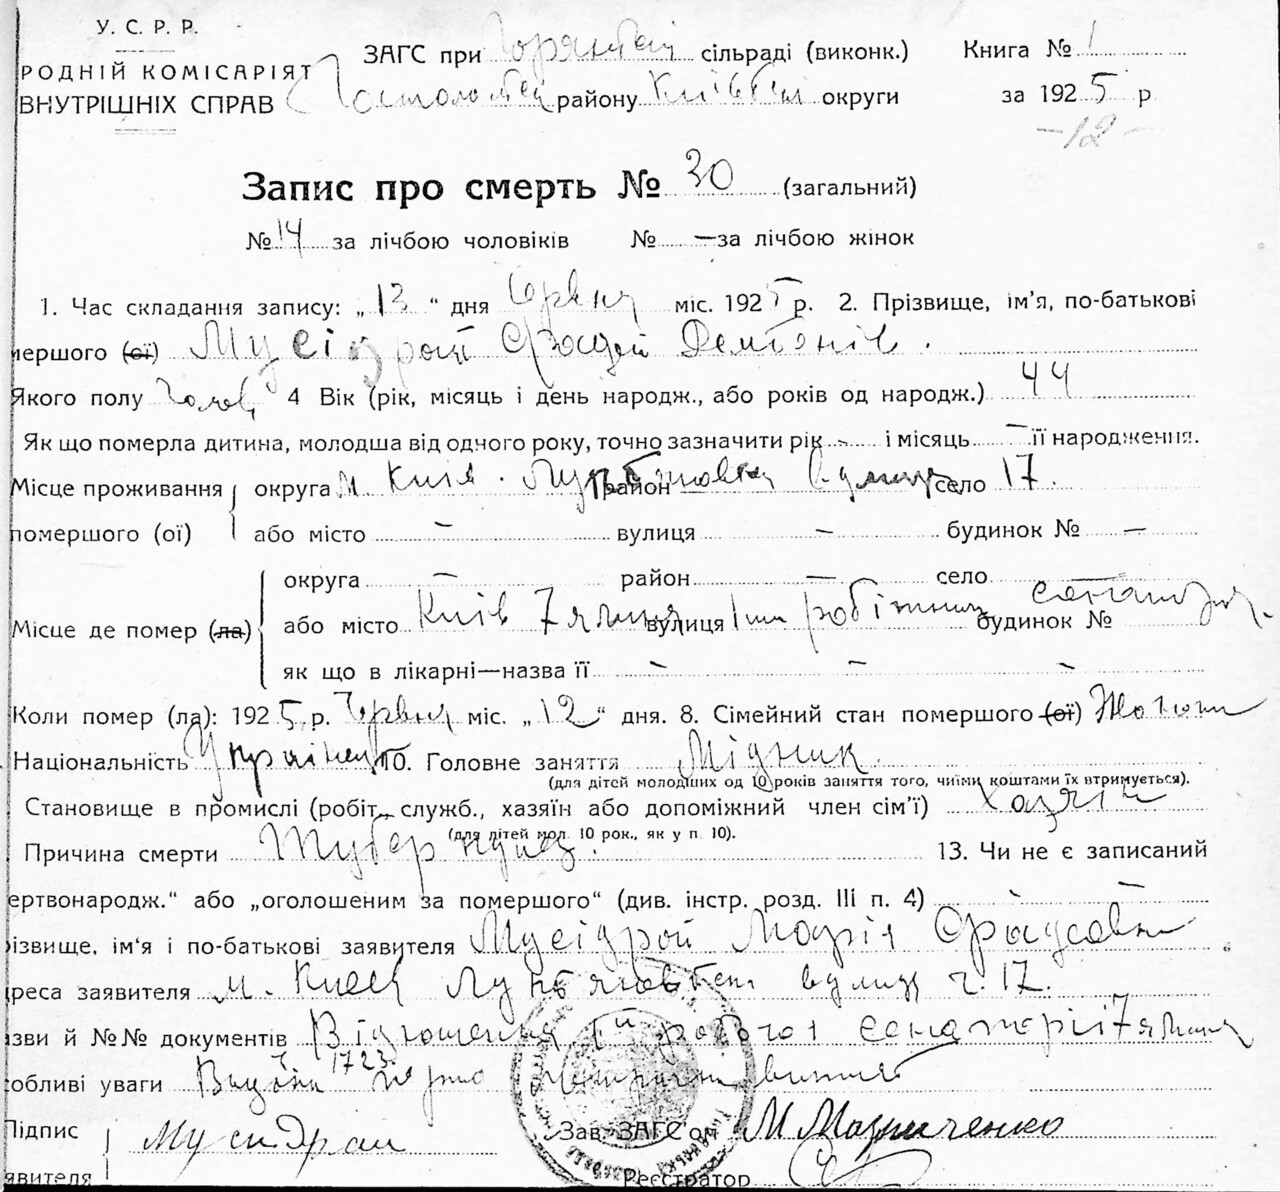 У. С. Р. Р.
РОДНІЙ КОМІСАРІЯТ
ВНУТРІШНІХ СПРАВ
ЗАГС при Горянській сільраді (виконк.)
Гостоломській району Київській округи
Книга № 1
за 1925 р.
-12-
Запис про смерть № 30 (загальний)
№ 14 за лічбою чоловіків № — за лічбою жінок
1. Час складання запису: „13" дня Червня міс. 1925 р. 2. Прізвище, ім'я, по-батькові
мершого (ої) Мусідрой Фадей Демянів.
Якого полу Чолов 4 Вік (рік, місяць і день народж., або років од народж.) 44
Як що померла дитина, молодша від одного року, точно зазначити рік - і місяць - її народження.
Місце проживання округа м. Київ. Лукяновка район вулиця село 17.
помершого (ої) або місто — вулиця — будинок № —
округа — район — село —
Місце де помер (ла) або місто Київ вулиця 1ша робітнича будинок № санаторія.
як що в лікарні—назва її — — —
Коли помер (ла): 1925 р. Червня міс. „12" дня. 8. Сімейний стан помершого (ої)
Національність Українец 10. Головне заняття Мідник
(для дітей молодіших од 10 років заняття того, чиїми коштами їх втримується).
Становище в промислі (робіт., служб., хазяїн або допоміжний член сім'ї) Хазяїн
(для дітей мол. 10 рок., як у п. 10).
Причина смерти Туберкульоз. 13. Чи не є записаний
ертвонародж." або „оголошеним за помершого" (див. інстр. розд. III п. 4) —
різвище, ім'я і по-батькові заявителя Мусідрой Марія Фадеевна
реса заявителя м. Київ Лукяновска вулиця ч. 17.
азви й №№ документів Відношення 1й робочої санаторії
ч. 1723.
обливі уваги Видана
Підпис
явителя
Мусидрай
Зав. ЗАГС'ом М Мазниченко
Реєстратор